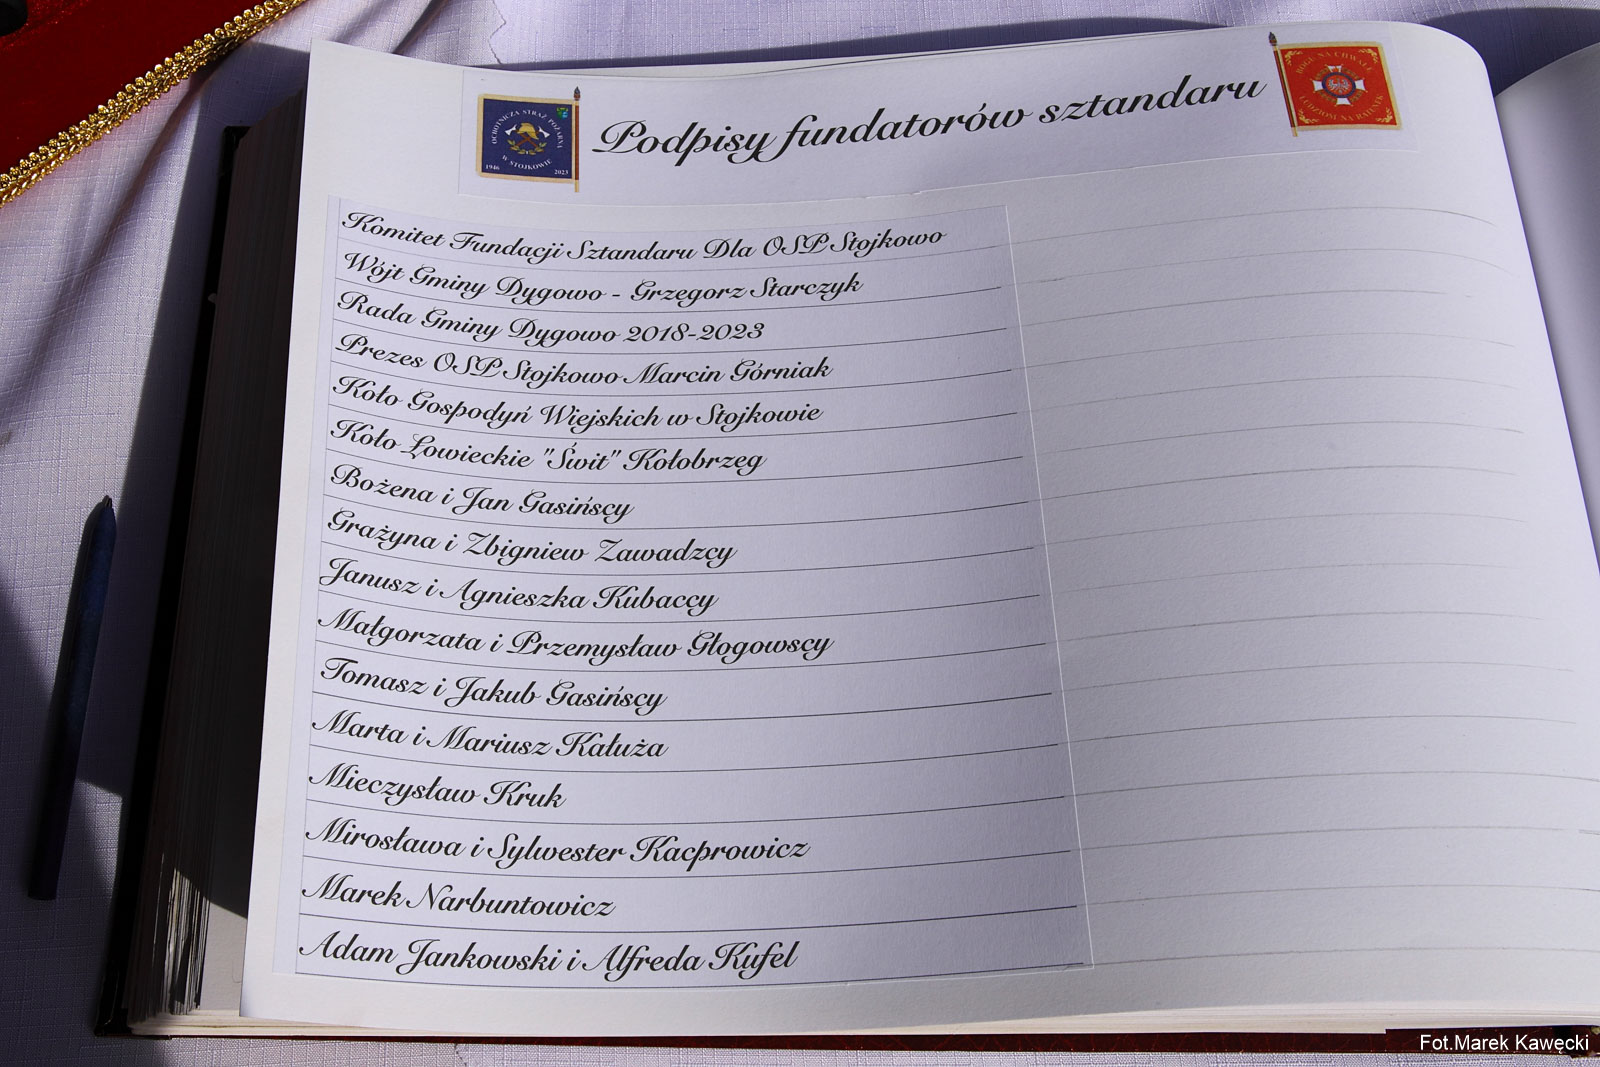 OCHOTNICZA STRAŻ POŻARNA
W STOJKOWIE
1946 2023
Podpisy fundatorów sztandaru
BOGU NA CHWAŁĘ
LUDZIOM NA RATUNEK
Komitet Fundacji Sztandaru Dla OSP Stojkowo
Wójt Gminy Dygowo - Grzegorz Starczyk
Rada Gminy Dygowo 2018-2023
Prezes OSP Stojkowo Marcin Górniak
Koło Gospodyń Wiejskich w Stojkowie
Koło Łowieckie "Świt" Kołobrzeg
Bożena i Jan Gasińscy
Grażyna i Zbigniew Zawadzcy
Janusz i Agnieszka Kubaccy
Małgorzata i Przemysław Głogowscy
Tomasz i Jakub Gasińscy
Marta i Mariusz Kałuża
Mieczysław Kruk
Mirosława i Sylwester Kacprowicz
Marek Narbuntowicz
Adam Jankowski i Alfreda Kufel
Fot.Marek Kawęcki